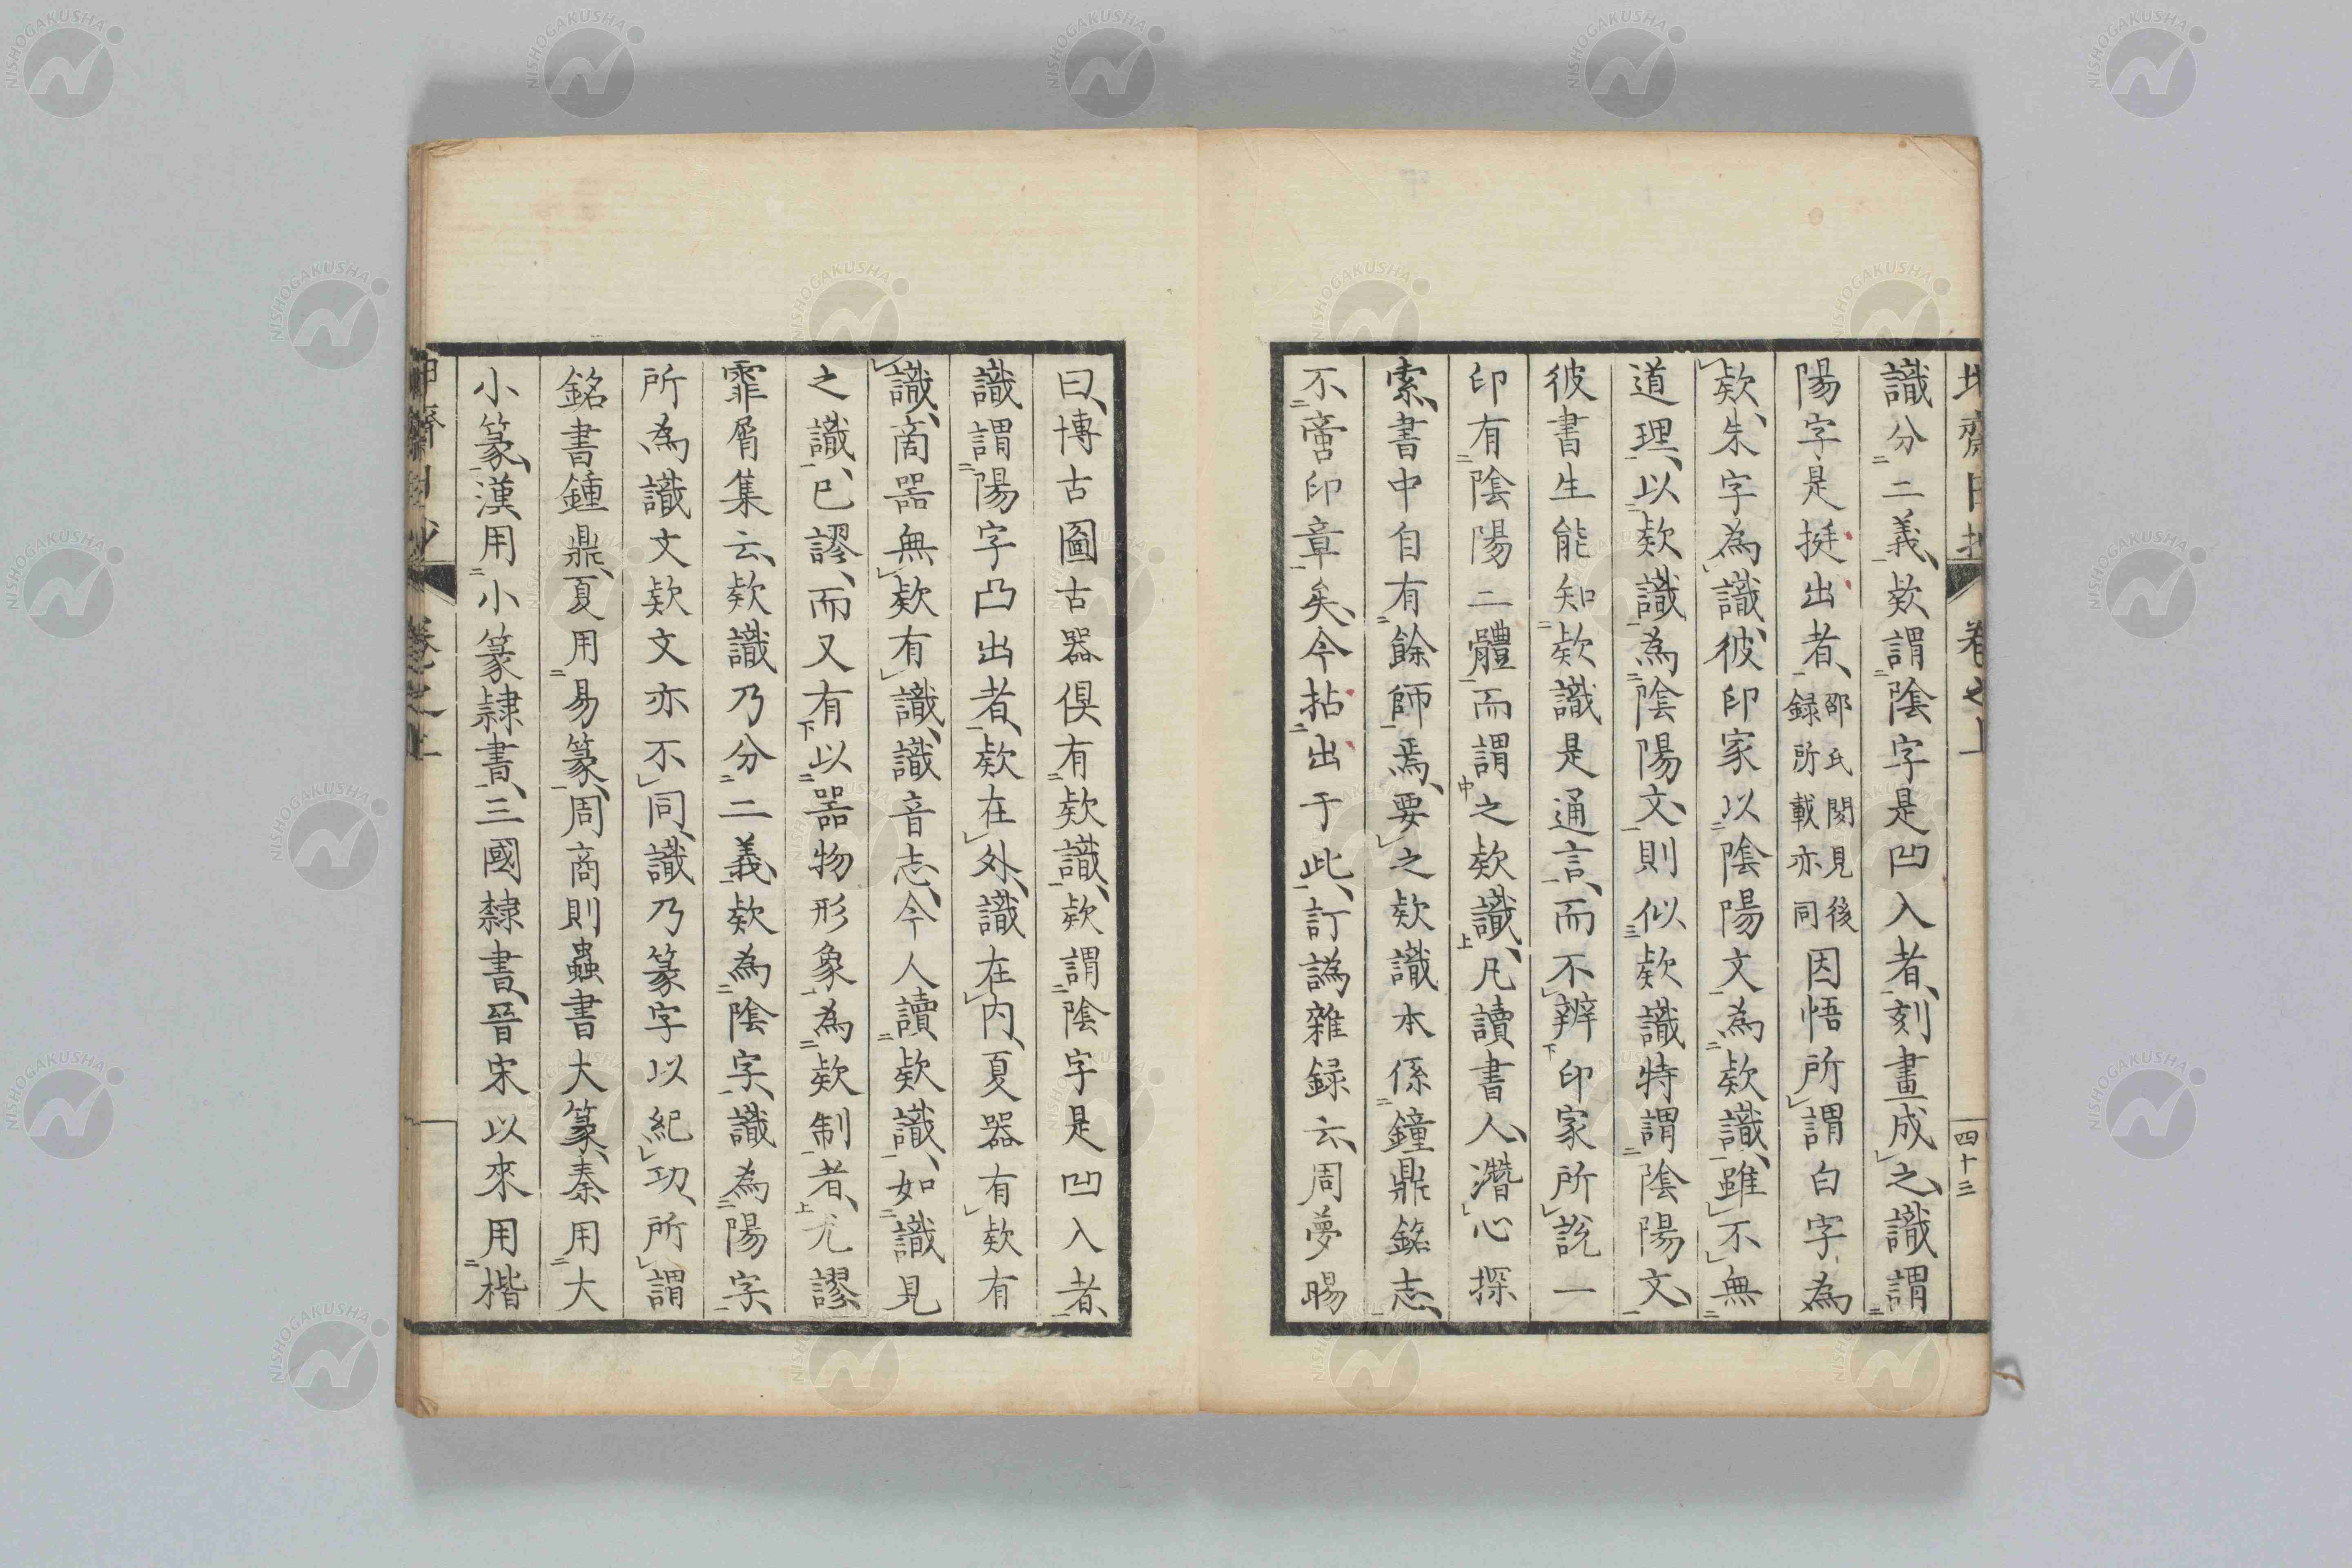 識分二義、欵謂陰字是凹入者、刻畫成之、識謂
陽字是挺出者、邵氏聞見後録所載亦同因悟所謂白字為
欵、朱字為識、彼印家以陰陽文為欵識、雖不無
道理、以欵識為陰陽文、則似欵識特謂陰陽文、
彼書生能知欵識是通言、而不辨印家所說一
印有陰陽二體而謂之欵識、凡讀書人、潛心探
索、書中自有餘師焉、要之欵識本係鐘鼎銘志、
不啻印章矣、今拈出于此、訂譌雜録云、周夢暘
四十三
曰、博古圖古器俱有欵識、欵謂陰字是凹入者、
識謂陽字凸出者、欵在外、識在内、夏器有欵有
識、商器無欵有識、識音志、今人讀欵識、如識見
之識、已謬、而又有以器物形象為欵制者、尤謬
霏屑集云、欵識乃分二義、欵為陰字、識為陽字、
所為識文欵文亦不同、識乃篆字以紀功、所謂
銘書鍾鼎、夏用易篆、周商則蟲書大篆、秦用大
小篆、漢用小篆隷書、三國隸書、晉宋以來用楷
卷之上
NISHOGAKUSHA